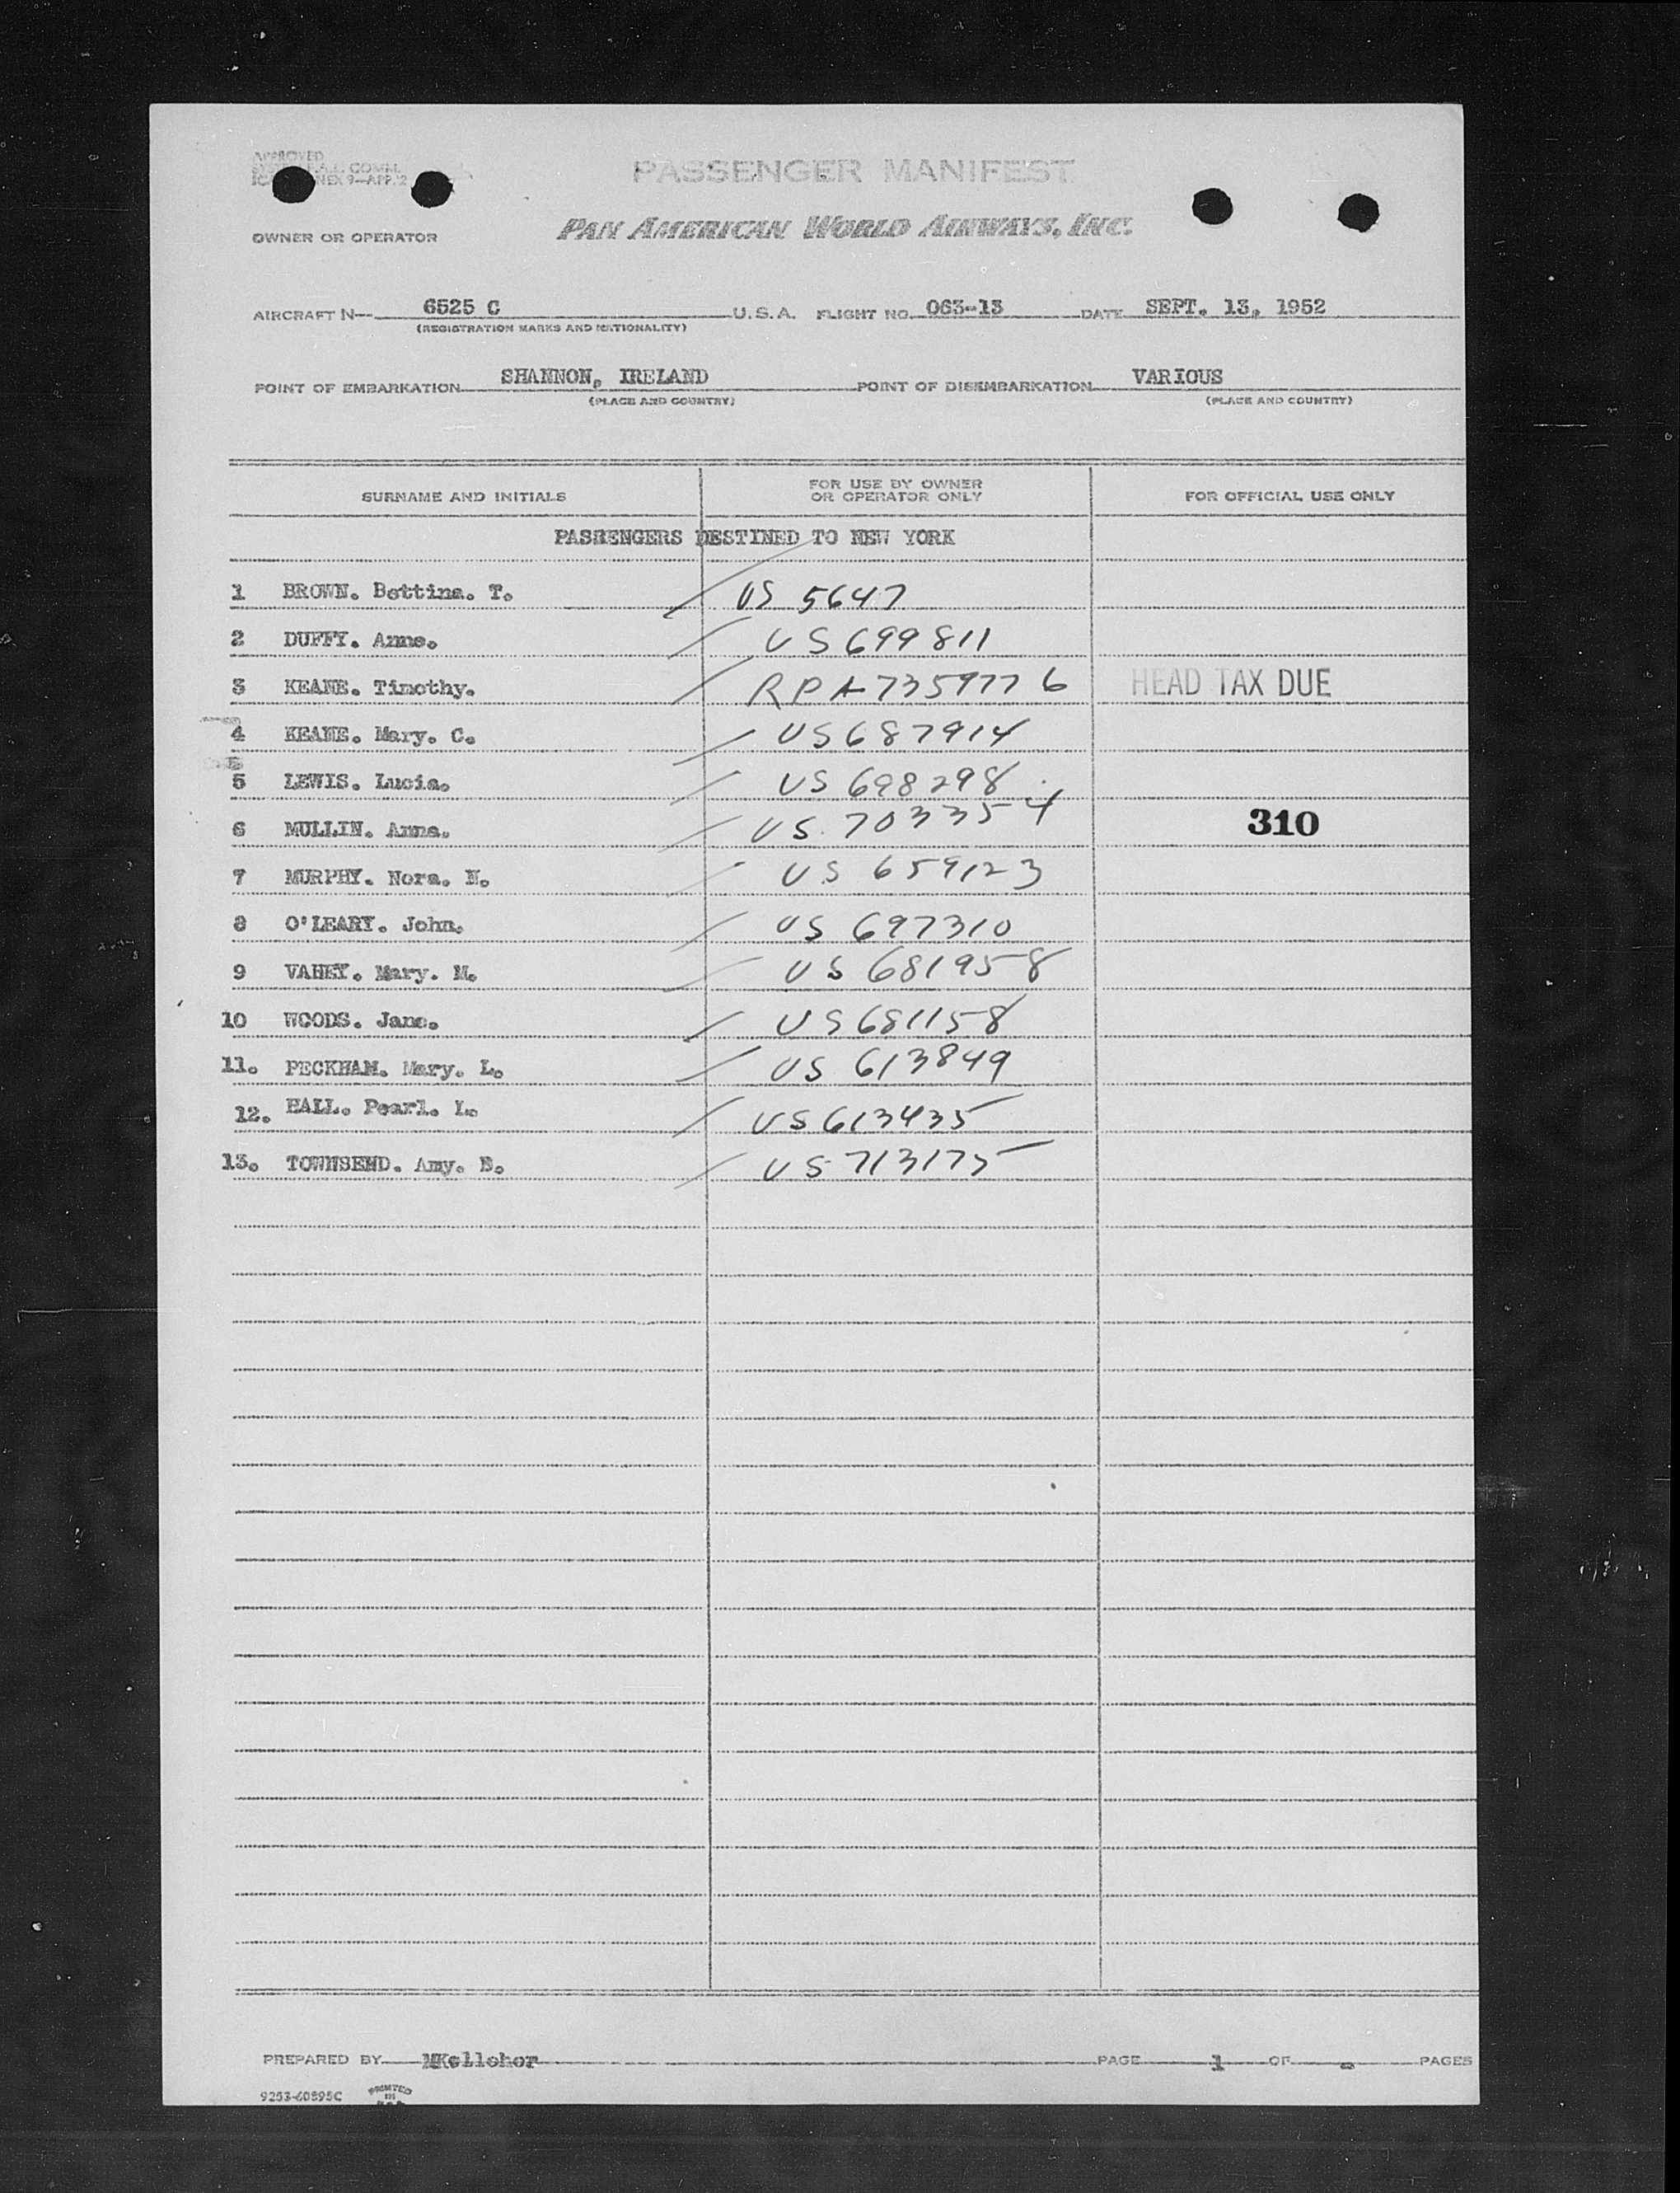 APPROVED
PASSENGER MANIFEST
OWNER OR OPERATOR PAN AMERICAN WORLD AIRWAYS, INC.
AIRCRAFT N— 6525 C U.S.A. FLIGHT NO. 063-13 DATE SEPT. 13, 1952
(REGISTRATION MARKS AND NATIONALITY)
POINT OF EMBARKATION SHANNON, IRELAND POINT OF DISEMBARKATION VARIOUS
(PLACE AND COUNTRY) (PLACE AND COUNTRY)
SURNAME AND INITIALS FOR USE BY OWNER OR OPERATOR ONLY FOR OFFICIAL USE ONLY
PASSENGERS DESTINED TO NEW YORK
1 BROWN. Bettina. T. US 5647
2 DUFFY. Anne. US 699811
3 KEANE. Timothy. RPA 7359776 HEAD TAX DUE
4 KEANE. Mary. C. US 687914
5 LEWIS. Lucia. US 698298
6 MULLIN. Anna. US 703354 310
7 MURPHY. Nora. N. US 659123
8 O'LEARY. John. US 697310
9 VAHEY. Mary. M. US 681958
10 WOODS. Jane. US 681158
11. PECKHAM. Mary. L. US 613849
12. HALL. Pearl. L. US 613435
13. TOWNSEND. Amy. B. US 713175
PREPARED BY MKellehor PAGE 1 OF - PAGES
9253-60895C PRINTED IN